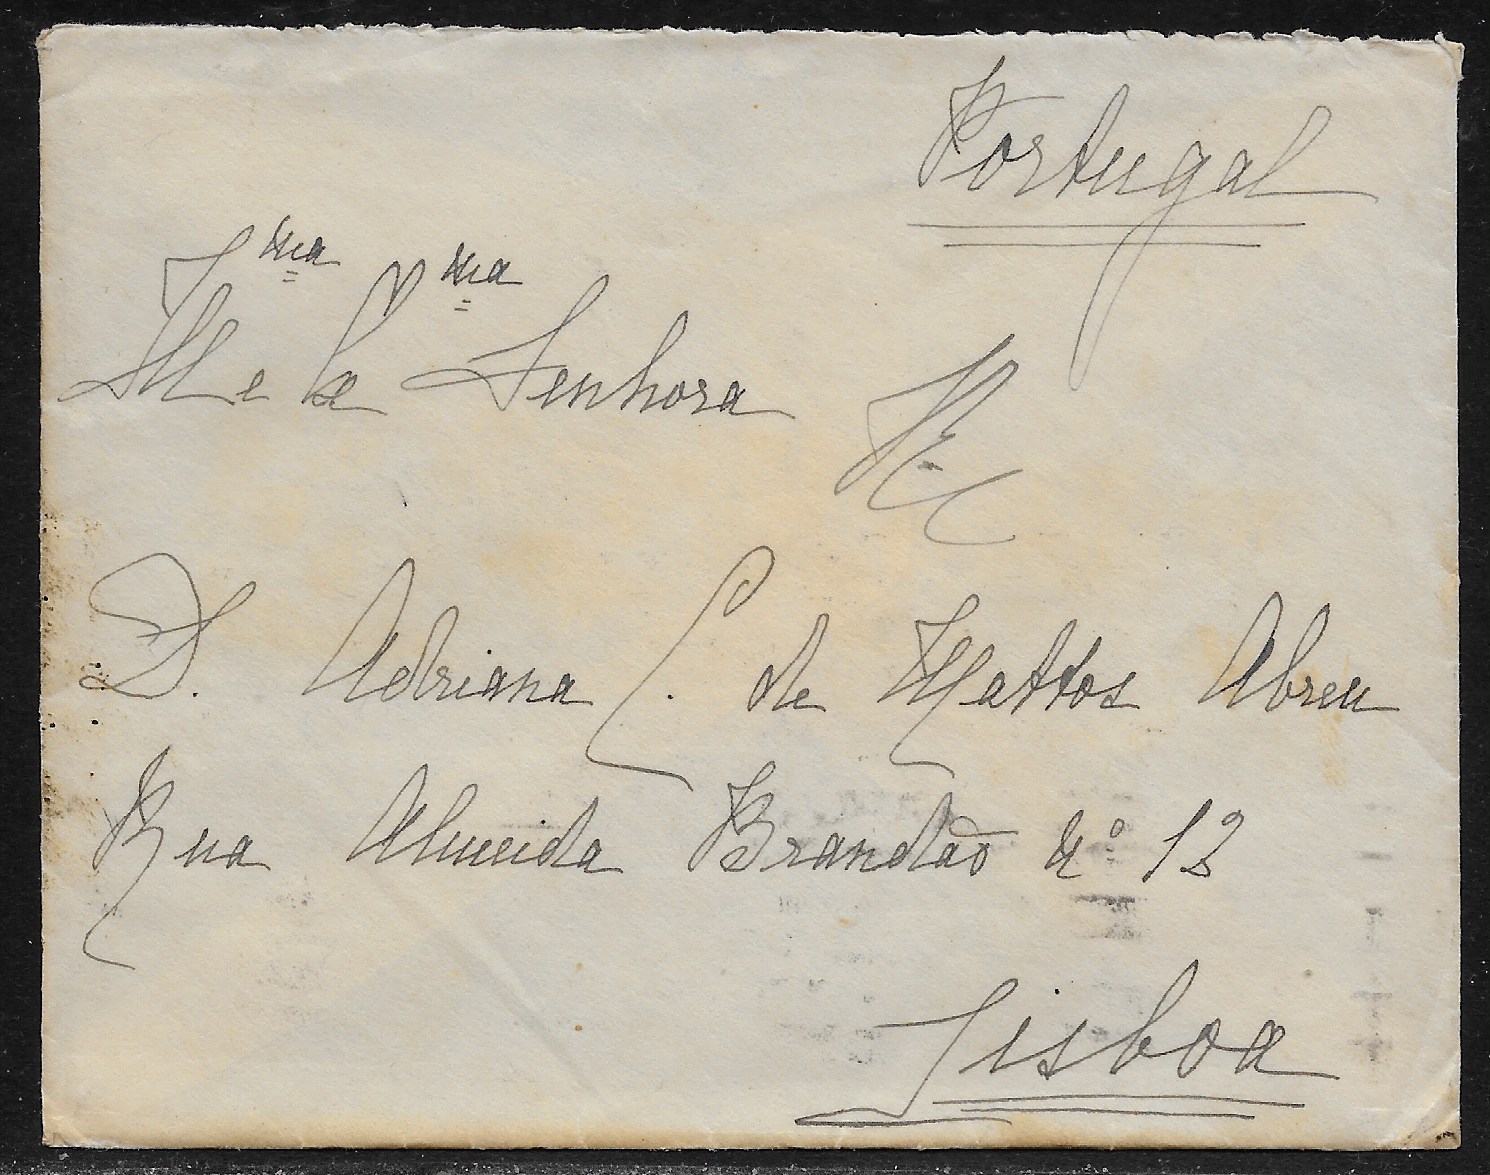 Portugal
Illma e Exma Senhora
D. Adriana C. de Mattos Abreu
Rua Almeida Brandão nº 12
Lisboa